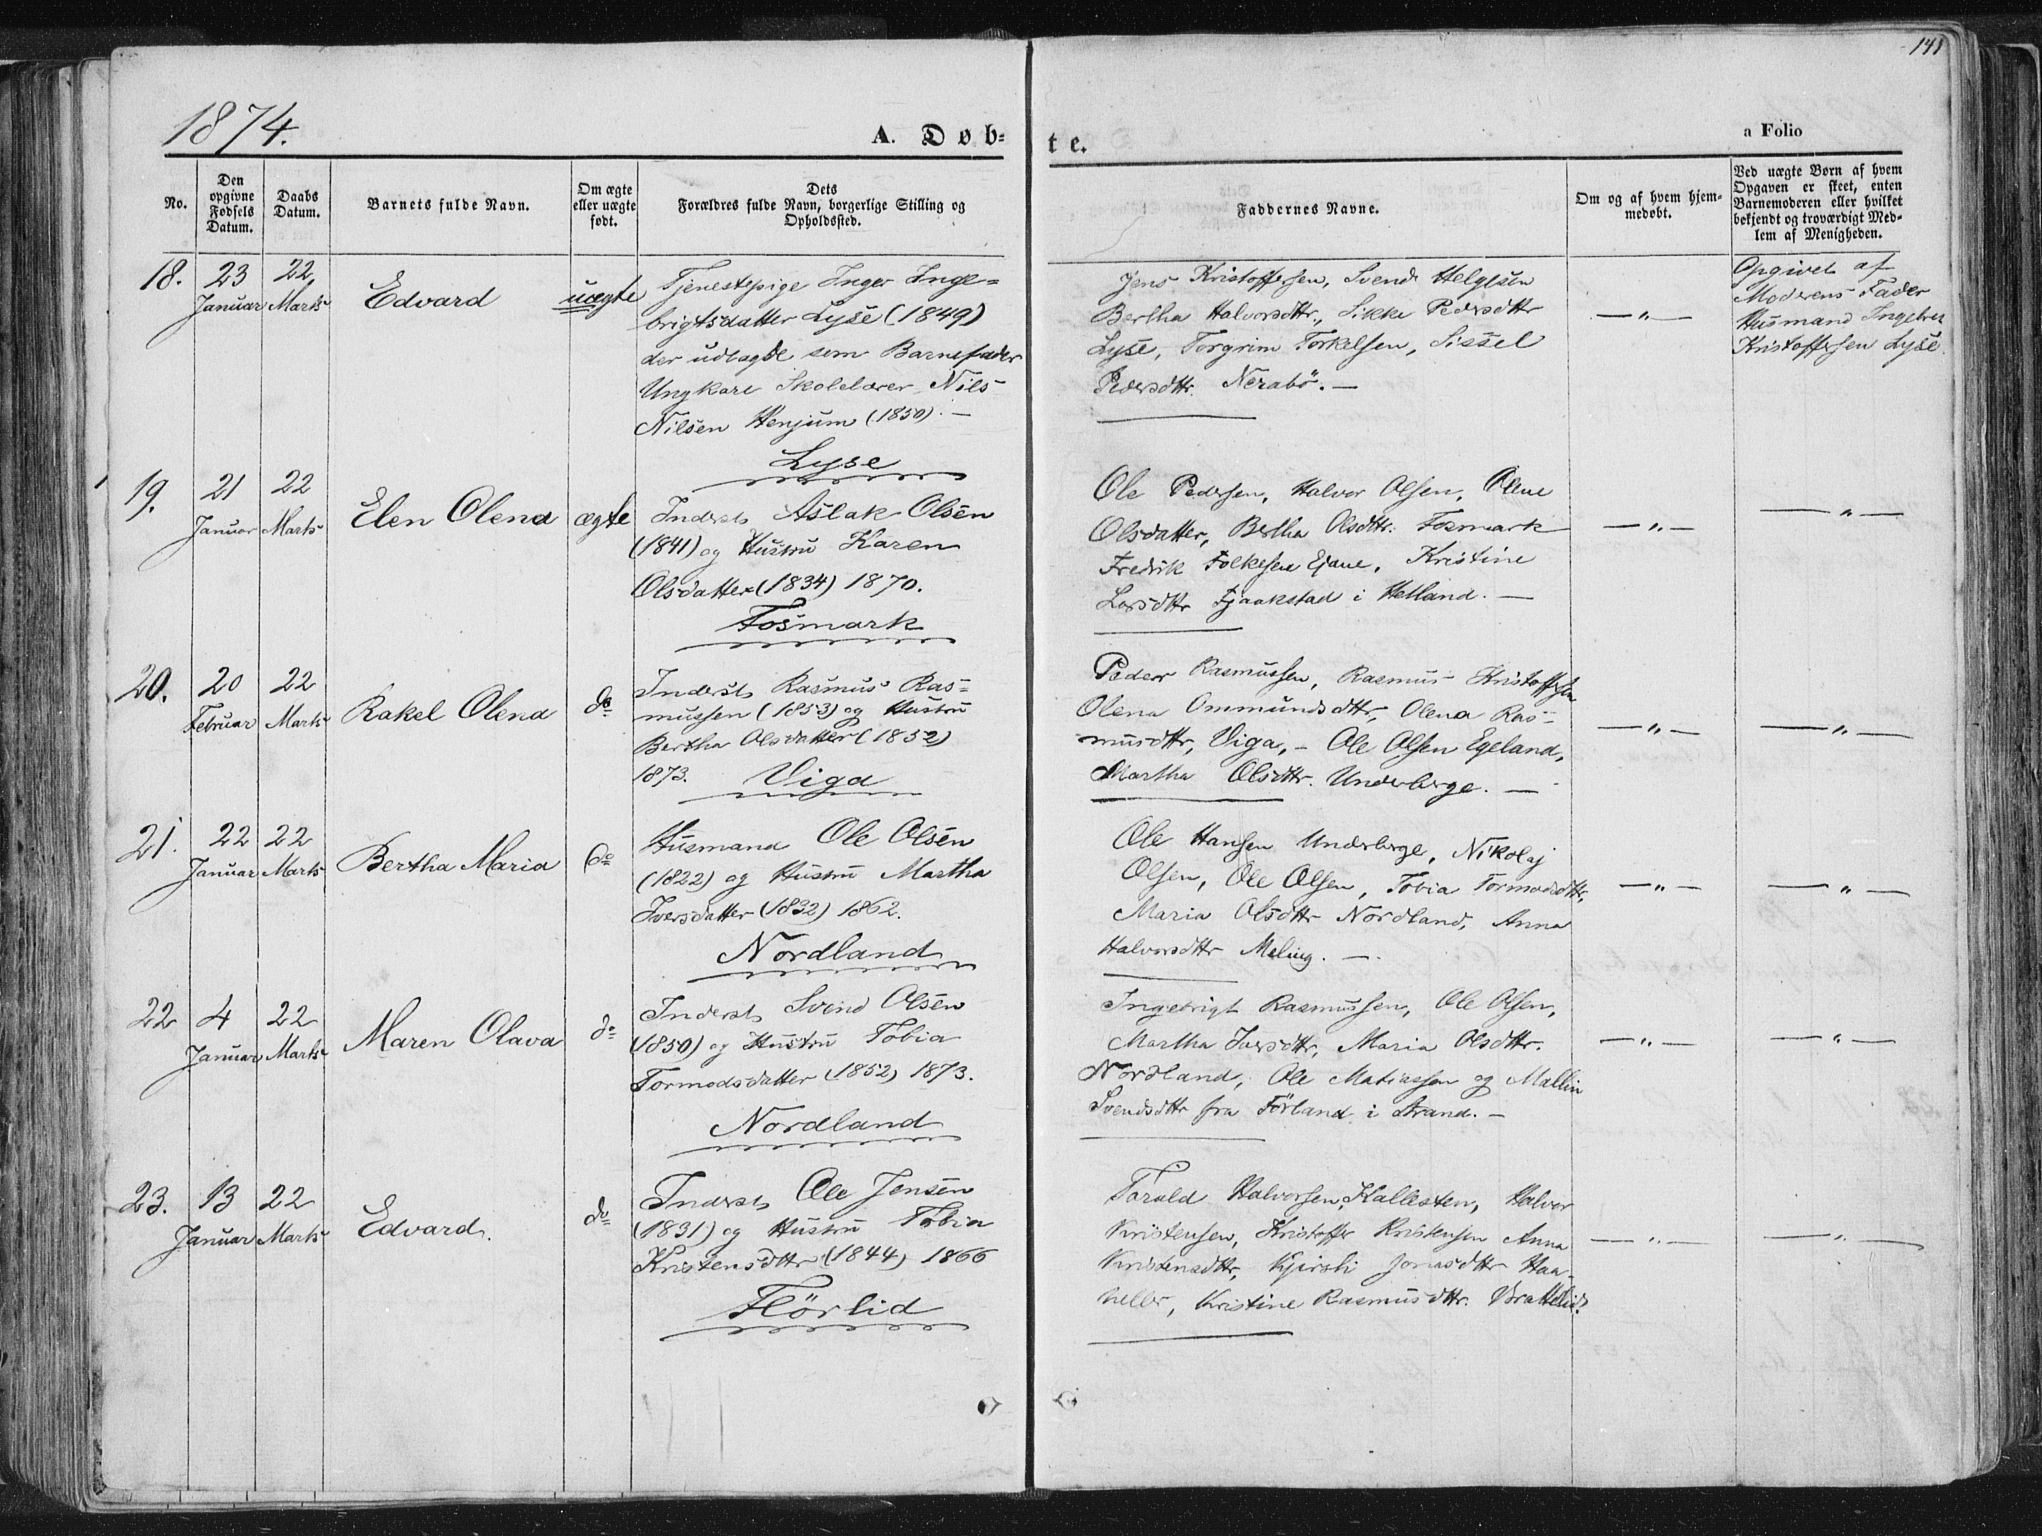 141
1874.
A. Døb-
te.
a Folio
No.
Den opgivne Fødsels Datum.
Daabs Datum.
Barnets fulde Navn.
Om ægte eller uægte født.
Dets Forældres fulde Navn, borgerlige Stilling og Opholdssted.
Faddernes Navne.
Om og af hvem hjem-
medøbt.
Ved uægte Børn af hvem
Opgaven er skeet, enten
Barnemoderen eller hvilket
bekjendt og troværdigt Med-
lem af Menigheden.
18. 23 Januar 22 Marts Edvard uægte
Tjenestepige Inger Inge-
brigtsdatter Lyse (1849)
der udlagde som Barnefader
Ungkarl Skolelærer Nils
Nilsen Henjum (1850). —
Lyse
Jens Kristoffersen, Svend Helgesen
Bertha Halvorsdttr., Sikke Pedersdttr
Lyse, Torgrim Torkelsen, Sissel
Pedersdttr. Nerabö. —
— „ —
Opgivet af
Moderens Fader
Husmand Ingebret
Kristoffersen Lyse.
19. 21 Januar 22 Marts Elen Olena ægte
Inderst Aslak Olsen
(1841) og Hustru Karen
Olsdatter (1834) 1870.
Fosmark
Ole Pedersen, Halvor Olsen, Olene
Olsdatter, Bertha Olsdttr. Fosmark
Fredrik Folkesen Ejane, Kristine
Larsdttr Fjaakstad i Helland. —
— „ — — „ —
20. 20 Februar 22 Marts Rakel Olena do
Inderst Rasmus Ras-
mussen (1853) og Hustru
Bertha Olsdatter (1852)
1873. Viga
Peder Rasmussen, Rasmus Kristoffersen
Olena Ommundsdttr, Olena Ras-
musdttr, Viga, - Ole Olsen Egeland,
Martha Olsdttr. Underberge. —
— „ — — „ —
21. 22 Januar 22 Marts Bertha Maria do
Husmand Ole Olsen
(1822) og Hustru Martha
Iversdatter (1832) 1862.
Nordland
Ole Hansen Underberge, Nikolaj
Olsen, Ole Olsen, Tobia Tormodsdttr,
Maria Olsdttr Nordland, Anna
Halvorsdttr Meling. —
— „ — — „ —
22 4 Januar 22 Marts Maren Olava do
Inderst Svend Olsen
(1850) og Hustru Tobia
Tormodsdatter (1852) 1873.
Nordland
Ingebrigt Rasmussen, Ole Olsen,
Martha Iversdttr, Maria Olsdttr.
Nordland, Ole Matiassen og Mallin
Svendsdttr fra Förland i Strand. —
— „ — — „ —
23. 13 Januar 22 Marts Edvard. do
Inderst Ole Jensen
(1831) og Hustru Tobia
Kristensdttr (1844) 1866
Flörlid
Torald Halvorsen, Kallesten, Halvor
Kristensen, Kristoffer Kristensen Anna
Kristensdttr, Kjirsti Jonasdttr Haa-
heller, Kristine Rasmusdttr. Brattelid.
— „ — — „ —